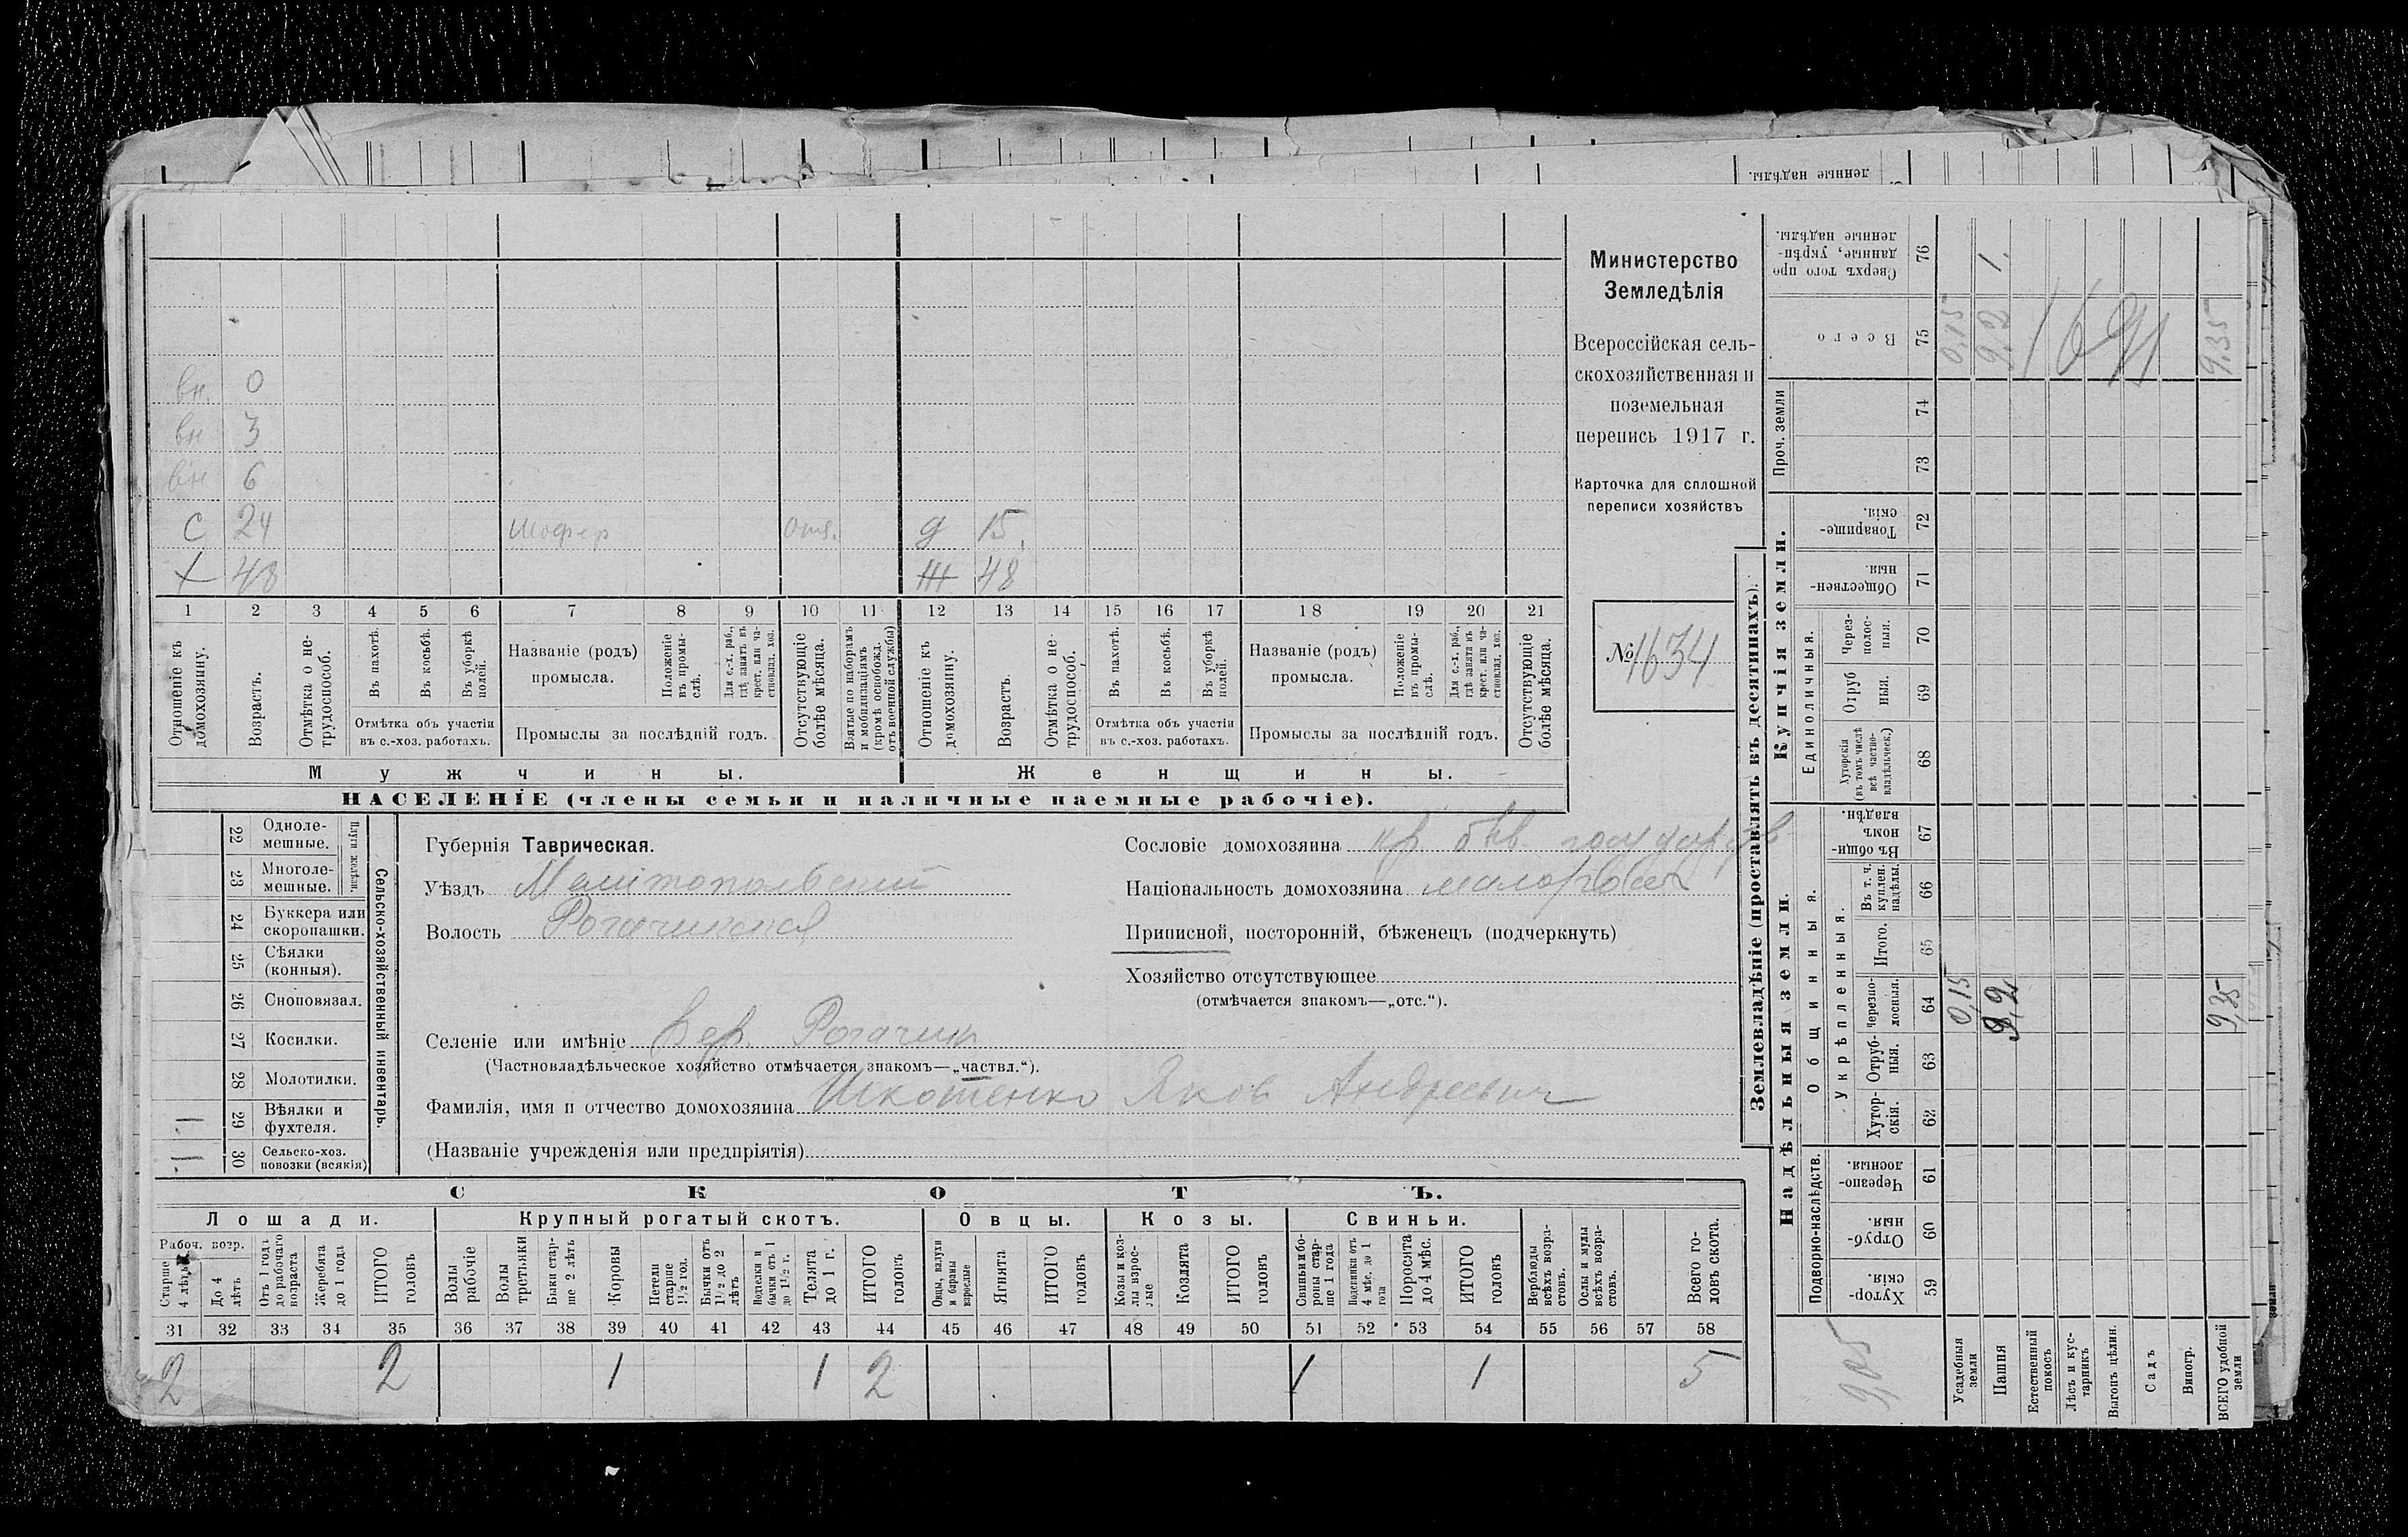 вн. 0
вн 3
вн 6
С 24 шофер отс. д 15.
Х 48 Ж 48
1 2 3 4 5 6 7 8 9 10 11 12 13 14 15 16 17 18 19 20 21
Отношеніе къ домохозяину.
Возрастъ.
Отмѣтка о не-трудоспособ.
Въ пахотѣ.
Въ косьбѣ.
Въ уборкѣ полей.
Отмѣтка объ участіи
въ с.-хоз. работахъ.
Названіе (родъ)
промысла.
Положеніе въ промы-слѣ.
Для с.-х. раб., гдѣ занятъ въ крест. или ча-стновлад. хоз.
Промыслы за послѣдній годъ.
Отсутствующіе болѣе мѣсяца.
Взятые по наборамъ и мобилизаціямъ (кромѣ освобожд. отъ военной службы)
Отношеніе къ домохозяину.
Возрастъ.
Отмѣтка о не-трудоспособ.
Въ пахотѣ.
Въ косьбѣ.
Въ уборкѣ полей.
Отмѣтка объ участіи
въ с.-хоз. работахъ.
Названіе (родъ)
промысла.
Положеніе въ промы-слѣ.
Для с.-х. раб., гдѣ занята въ крест. или ча-стновлад. хоз.
Промыслы за послѣдній годъ.
Отсутствующіе болѣе мѣсяца.
Мужчины. Женщины.
НАСЕЛЕНІЕ (члены семьи и наличные наемные рабочіе).
Министерство
Земледѣлія
Всероссійская сель-
скохозяйственная и
поземельная
перепись 1917 г.
Карточка для сплошной
переписи хозяйствъ
№ 1634
22 Одноле-мешные.
23 Многоле-мешные.
Плуги желѣзн.
24 Буккера или скоропашки.
25 Сѣялки (конныя).
26 Сноповязал.
27 Косилки.
28 Молотилки.
1 29 Вѣялки и фухтеля.
1 30 Сельско-хоз. повозки (всякія)
Сельско-хозяйственный инвентарь.
Губернія Таврическая.
Уѣздъ Мелитопольский
Волость Рогачикская
Селеніе или имѣніе Вер. Рогачик
(Частновладѣльческое хозяйство отмѣчается знакомъ—„частвл.“).
Фамилія, имя и отчество домохозяина Шкотенко Яков Андреевич
(Названіе учрежденія или предпріятія)
Сословіе домохозяина кр.
Національность домохозяина
Приписной, посторонній, бѣженецъ (подчеркнуть)
Хозяйство отсутствующее
(отмѣчается знакомъ—„отс.“).
СКОТЪ.
Лошади. Крупный рогатый скотъ. Овцы. Козы. Свиньи.
Рабоч. возр.
Старше 4 лѣтъ
До 4 лѣтъ
Отъ 1 года до рабочаго возраста
Жеребята до 1 года
ИТОГО головъ
Волы рабочіе
Волы третьяки
Быки стар-ше 2 лѣтъ
Коровы
Нетели старше 1½ год.
Бычки отъ 1½ до 2 лѣтъ
Подтелки и бычки отъ 1 до 1½ г.
Телята до 1 г.
ИТОГО головъ
Овцы, валухи и бараны взрослые
Ягнята
ИТОГО головъ
Козы и коз-лы взрос-лые
Козлята
ИТОГО головъ
Свиньи и бо-ровы стар-ше 1 года
Подсвинки отъ 4 мѣс. до 1 года
Поросята до 4 мѣс.
ИТОГО головъ
Верблюды всѣхъ возра-стовъ.
Ослы и мулы всѣхъ возра-стовъ.
Всего го-ловъ скота.
31 32 33 34 35 36 37 38 39 40 41 42 43 44 45 46 47 48 49 50 51 52 53 54 55 56 57 58
2 2 1 1 2 1 1 5
Землевладѣніе (проставлять въ десятинахъ).
Надѣльныя земли.
Купчія земли.
Проч. земли
Подворно-наслѣдств.
Общинныя.
Укрѣпленныя.
Единоличныя.
Хутор-скія. 59
Отруб-ныя. 60
Черезпо-лосныя. 61
Хутор-скія. 62
Отруб-ныя. 63
Черезпо-лосныя. 64
Итого. 65
Въ т. ч. куплен. надѣлы. 66
Въ общи-номъ владѣн. 67
Хуторскія (въ томъ числѣ всѣ частно-владѣльческ.) 68
Отруб ныя. 69
Через-полос-ныя. 70
Обществен-ныя. 71
Товарище-скія. 72
73
74
Всего 75
Сверхъ того про данные, укрѣп-ленные надѣлы. 76
9,05
Усадебныя земли 0,15 0,15
Пашня 9,2 9,2 1.
Естественный покосъ
Лѣсъ и кус-тарникъ
Выгонъ цѣлин.
Садъ
Виногр.
ВСЕГО удобной земли 9,35 9,35
1691
ленные надѣлы.